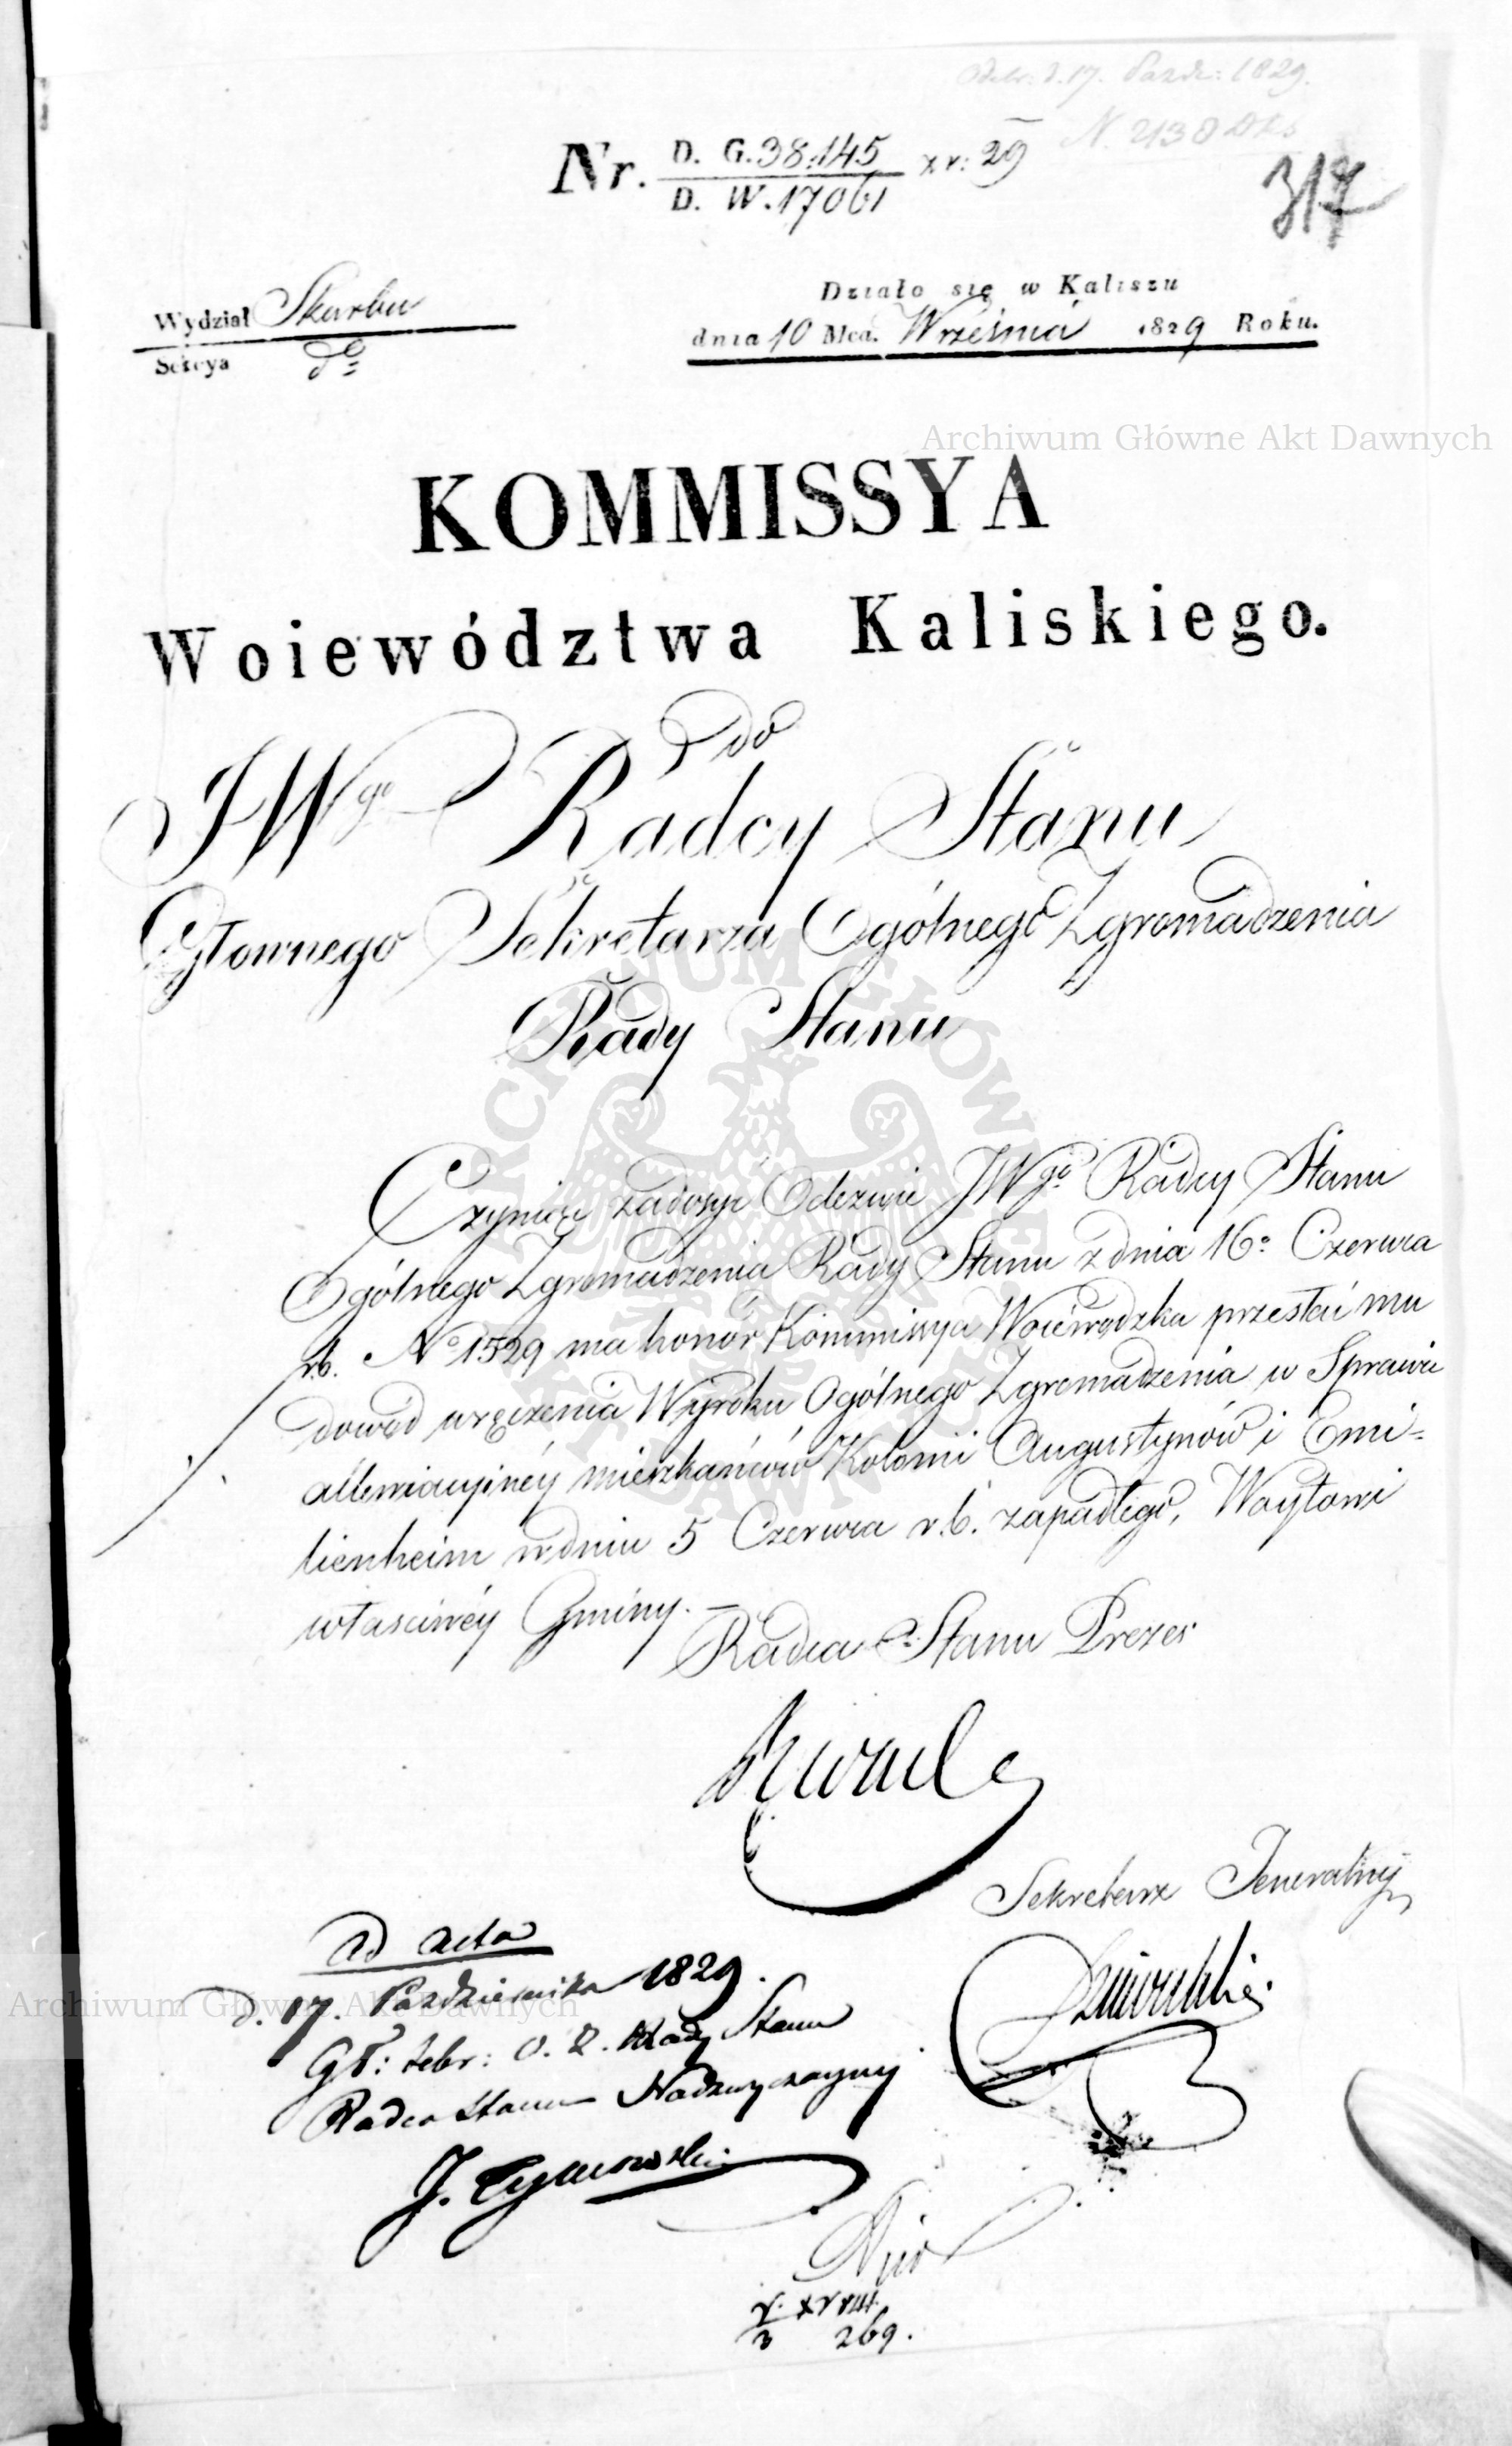 Odebr. d. 17. Paźdz: 1829.
N. 2130
317
Nr. D. G. 38.145 x r: 29
D. W. 17061
Wydział Skarbu
Sekcya do
Działo się w Kaliszu
dnia 10 Mca. Wrześnią 1829 Roku.
Archiwum Główne Akt Dawnych
KOMMISSYA
Woiewództwa Kaliskiego.
do
JWgo Radcy Stanu
Głownego Sekretarza Ogólnego Zgromadzenia
Rady Stanu
Czyniąc zadosyć Odezwie JWgo Radcy Stanu
Ogólnego Zgromadzenia Rady Stanu z dnia 16o Czerwca
r.b. No 1529 ma honor Kommissya Woiewódzka przesłać mu
dowód wręczenia Wyroku Ogólnego Zgromadzenia w Sprawie
allewiacyinéy mieszkańców Kolonii Augustynów i Emi=
lienheim w dniu 5 Czerwca r.b. zapadłego, Woytowi
własciwéy Gminy. –
Radca Stanu Prezes
Sekretarz Jeneralny
ad acta
D. 17. Października 1829.
Gł: Sekr: O. Z. Rady Stanu
Radca Stanu Nadzwyczayny
J. Tymowski
Archiwum Główne Akt Dawnych
269.
ARCHIWUM GŁÓWNE AKT DAWNYCH